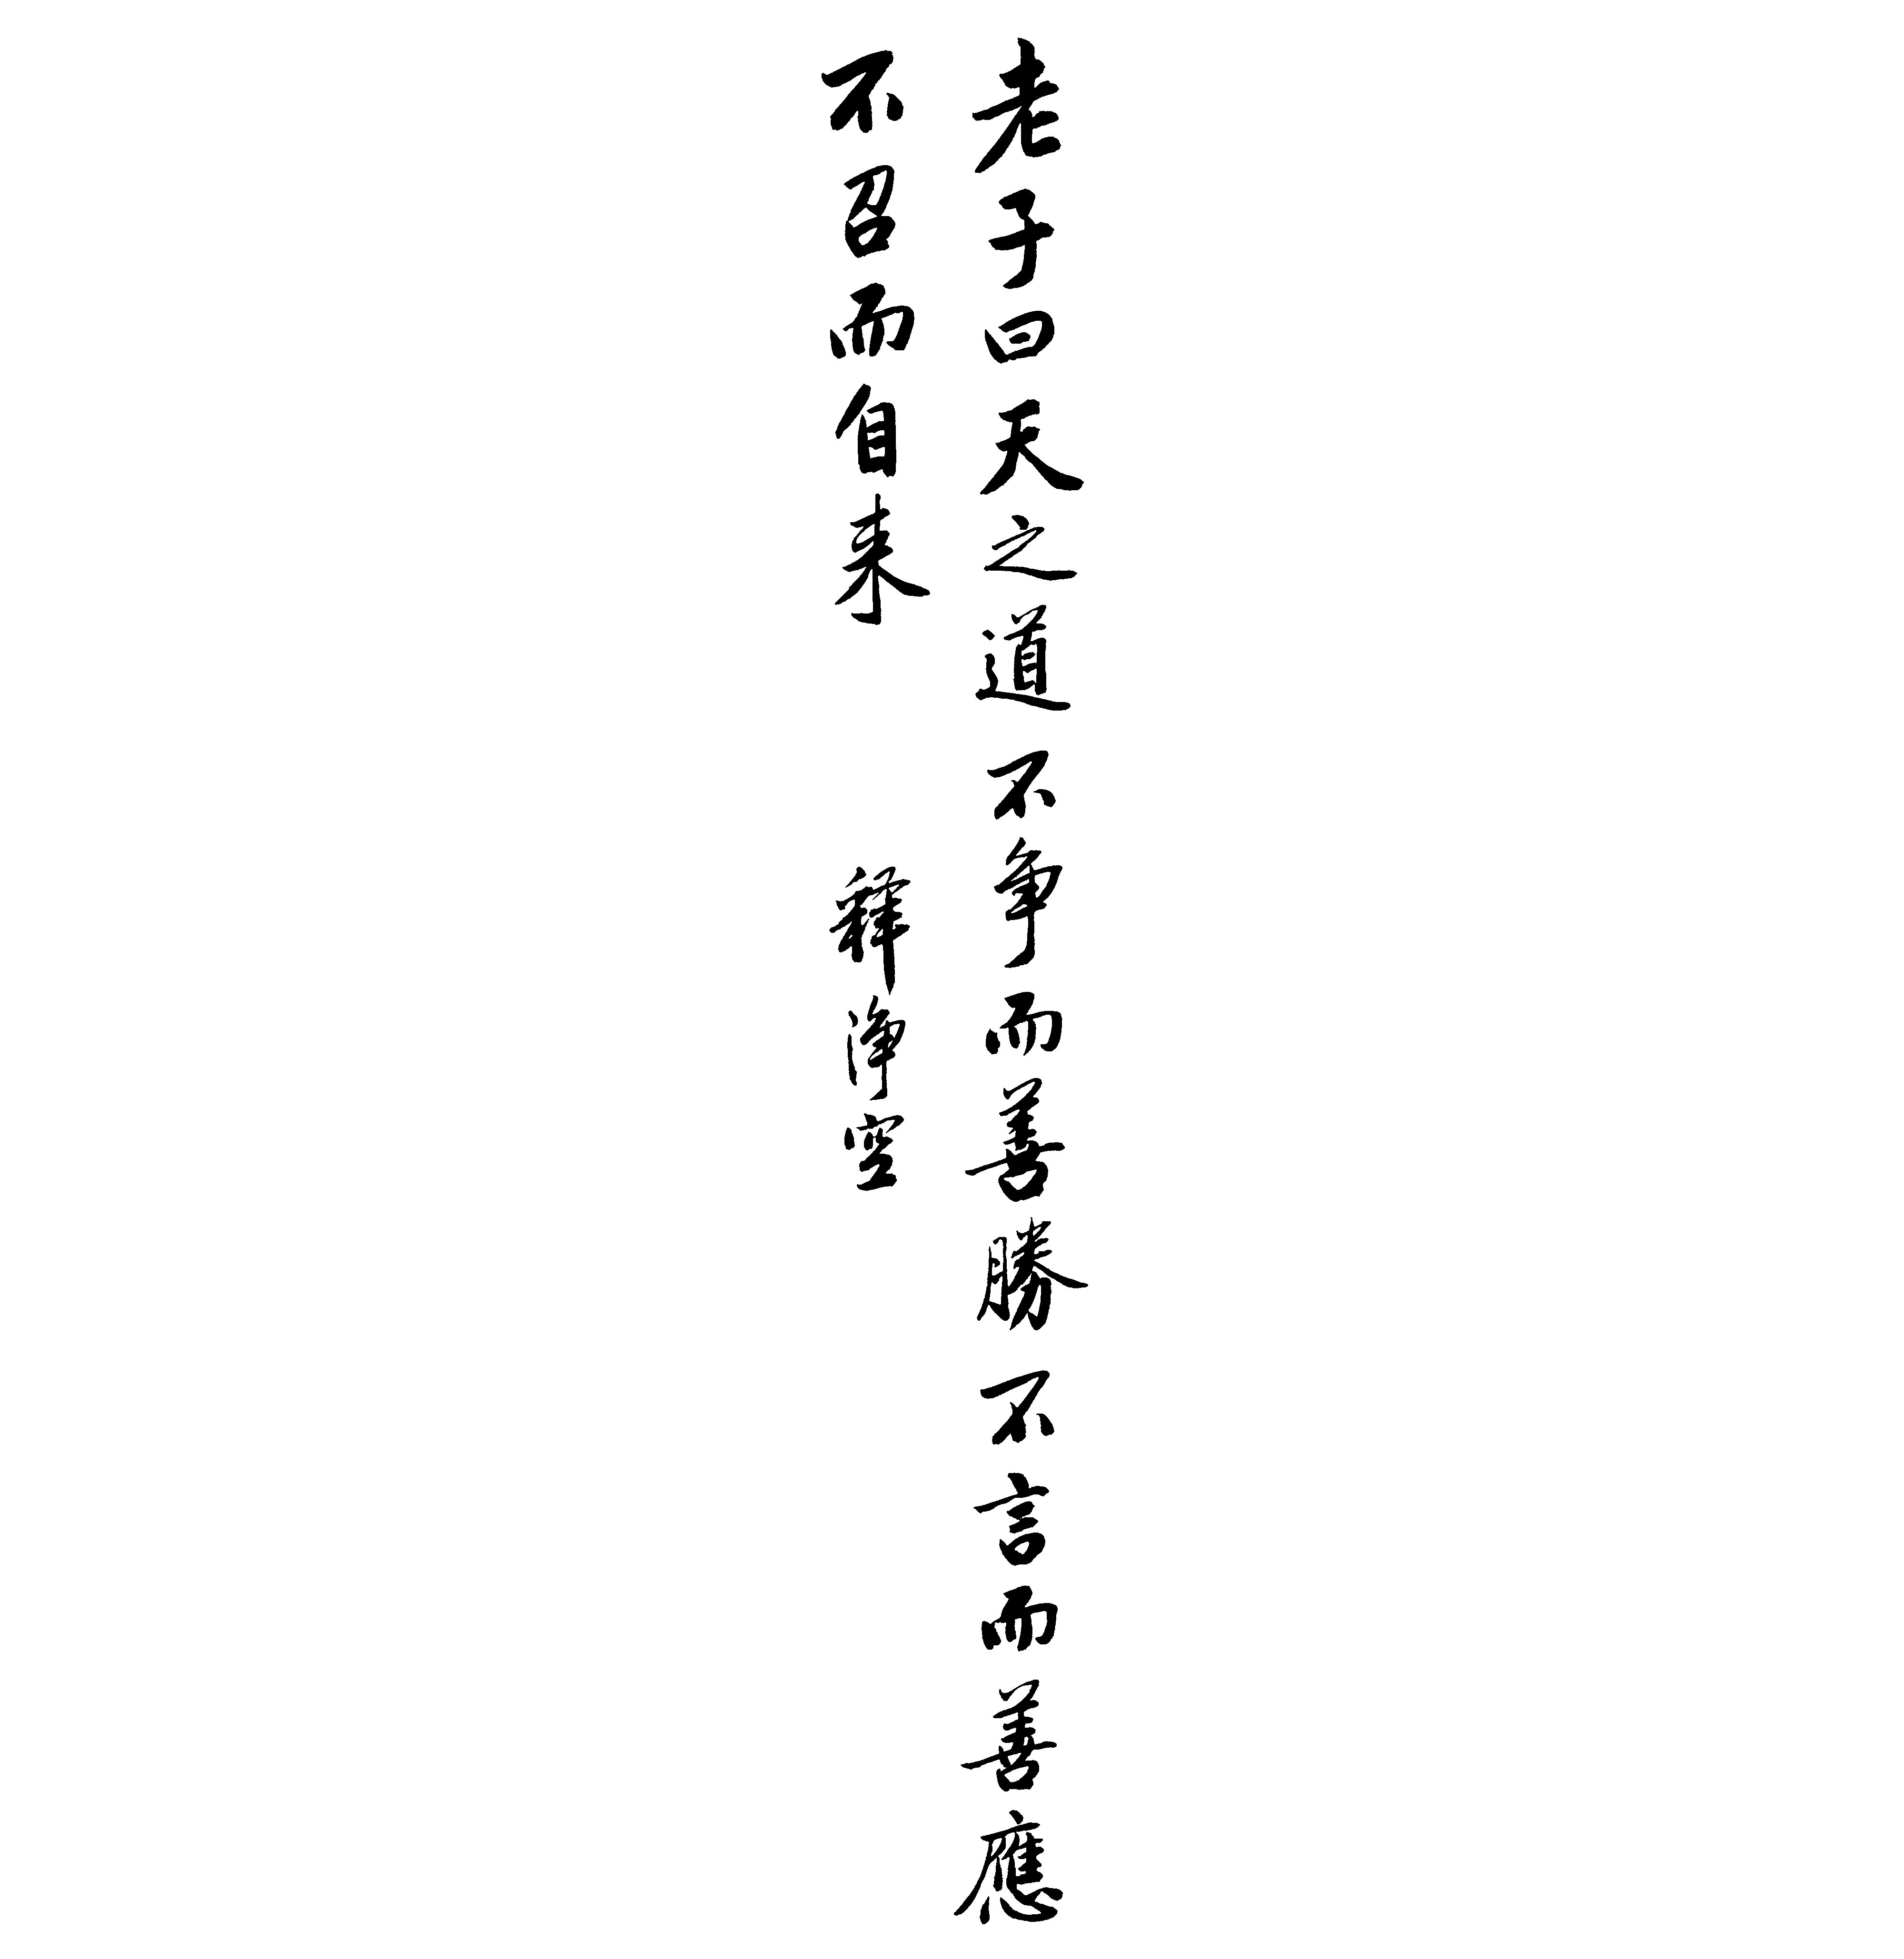 老子曰天之道不争而善勝不言而善應
不召而自来釋淨空